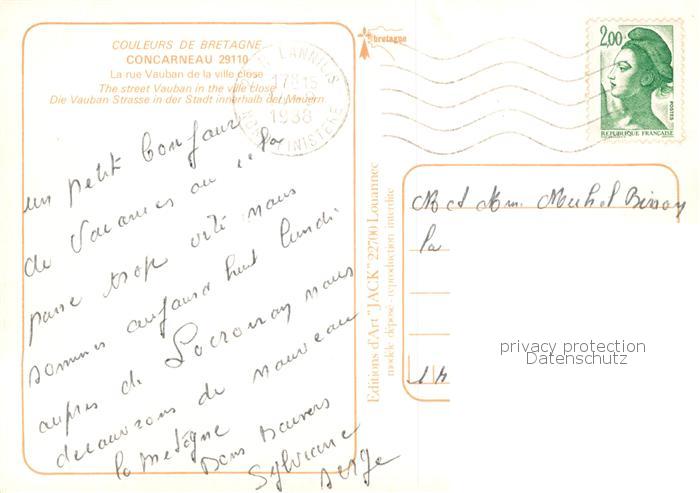 COULEURS DE BRETAGNE
CONCARNEAU 29110
La rue Vauban de la ville close
The street Vauban in the ville close
Die Vauban Strasse in der Stadt innerhalb der Mauern
un petit bonjour
de vacances ou "ça
passe trop vite nous
sommes aujourd huit lundi
aupres de Locronan nous
decouvrons de nouveau
la Bretagne
Bons Baisers
Sylviane
Serge
bretagne
LANNILIS
1988
FINISTERE
Editions d'Art "JACK" 22700 Louannec
modèle déposé - reproduction interdite
2,00
POSTES
REPUBLIQUE FRANÇAISE
M et Mm. Michel
la
privacy protection
Datenschutz